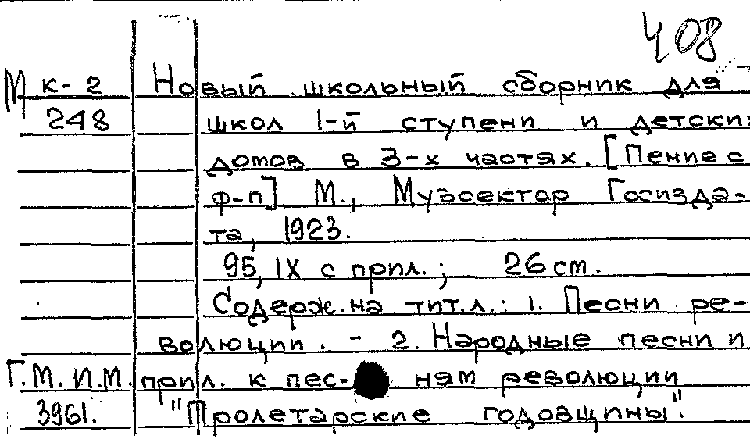 408
М к-2 Новый школьный сборник для
248 школ 1-й ступени и детски
домов в 3-х частях. [Пение с
ф-п] М., Музсектор Госизда-
та, 1923.
95, IX с прил.; 26 cm.
Содерж. на тит. л.: 1. Песни ре-
волюции. - 2. Народные песни и
Г.М.И.М. прил. к пес- ням революции
3961. "Пролетарские годовщины".